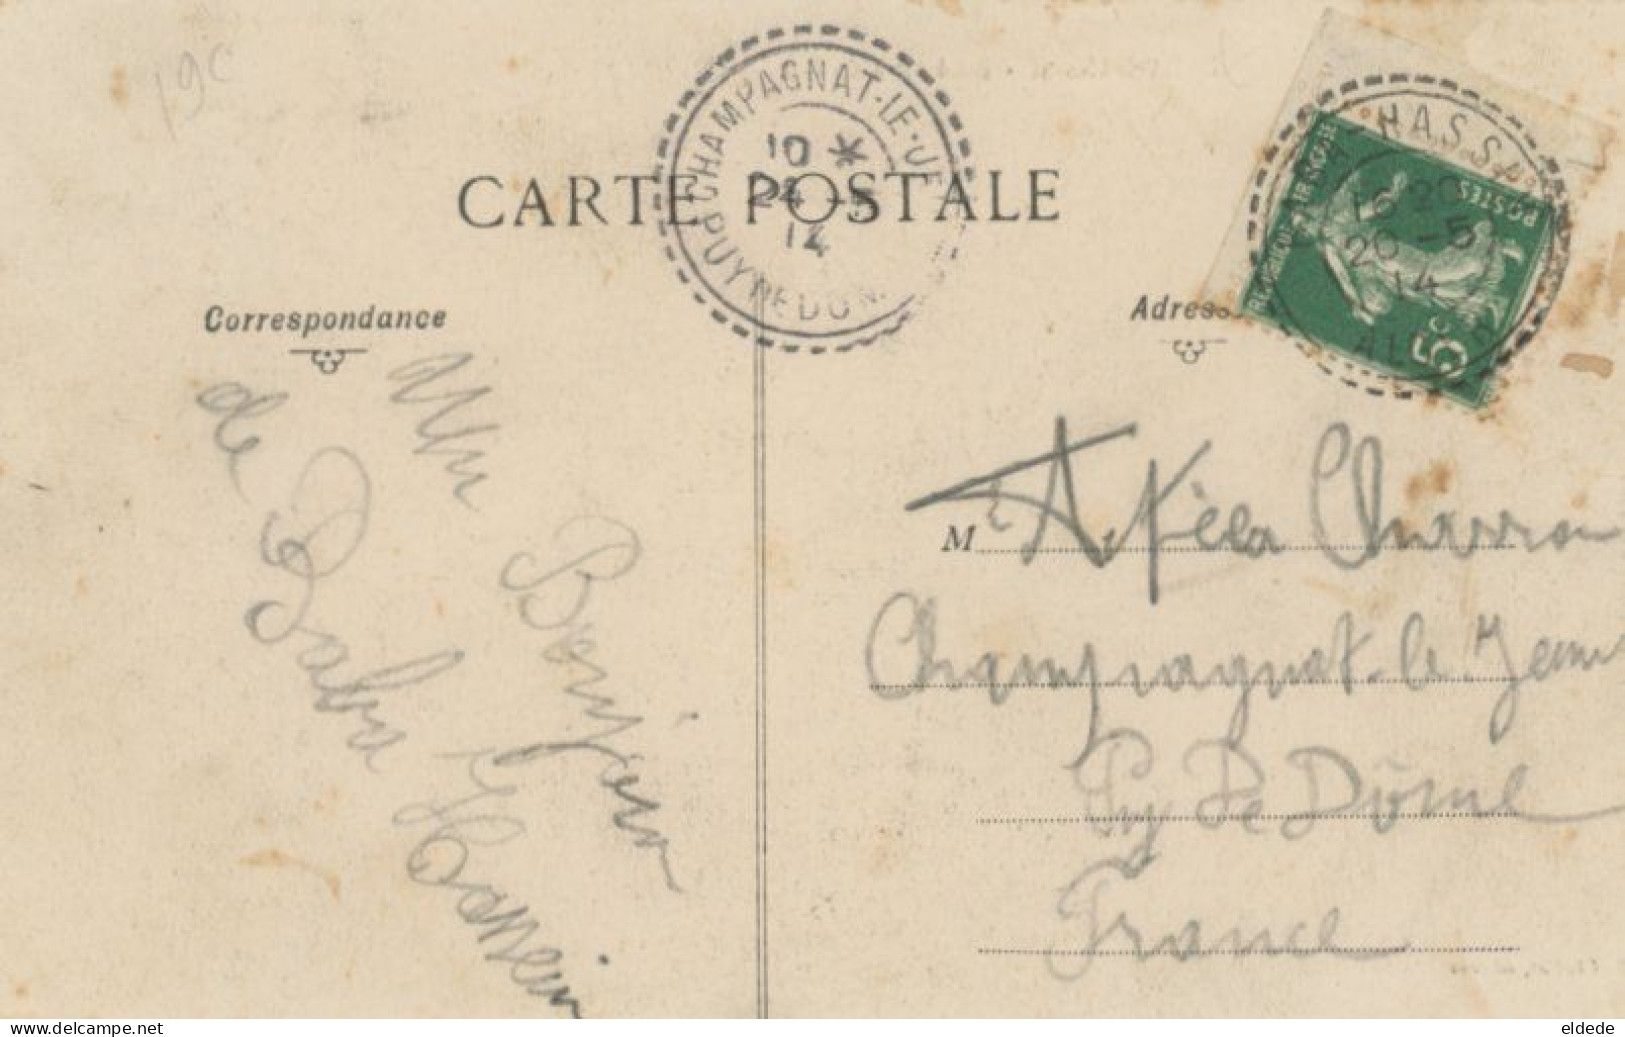 19c
CHAMPAGNAT-LE-JE
PUY DE DOM
10 *
24 -5
14
CARTE POSTALE
HASSA
10 20
20 -5
14
AL
REPUBLIQUE FRANÇAISE
POSTES
5c
Correspondance
Adresse
Un Bonjour
de Baba
Hossein
M
Charron
Champagnat-le-Jeune
Puy De Dôme
France
www.delcampe.net
eldede